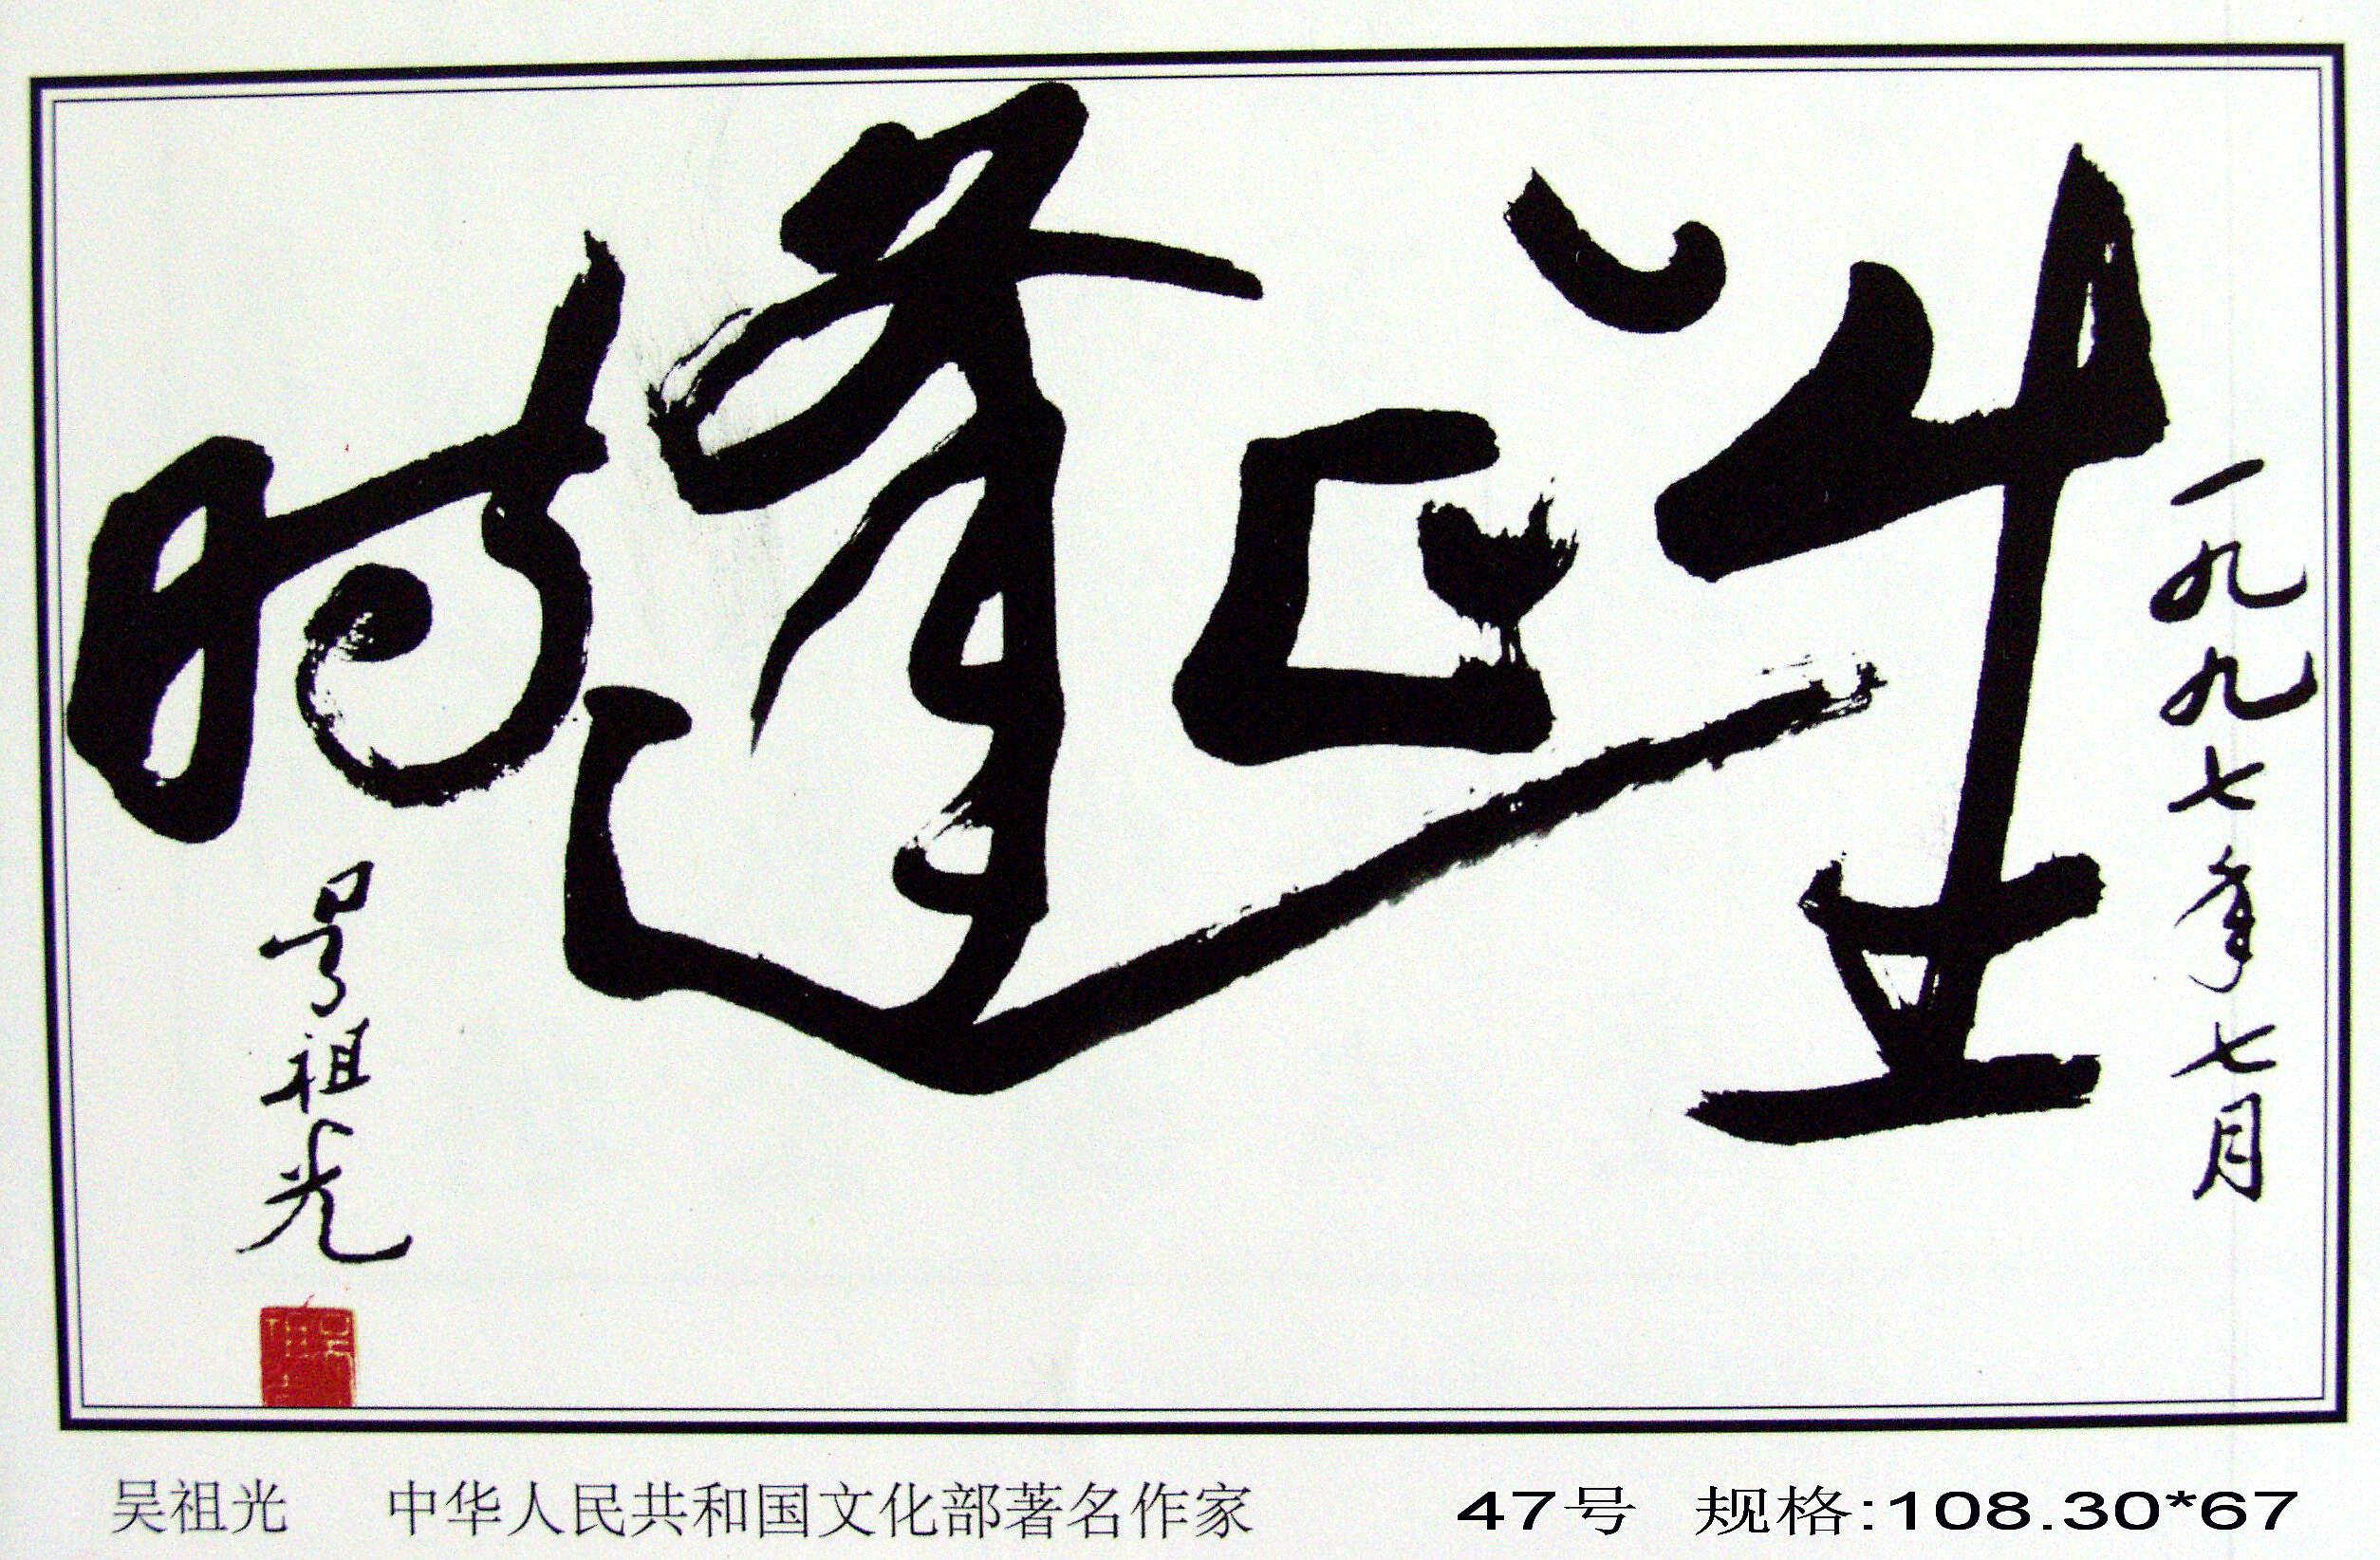 生正逢时
一九九七年七月
吴祖光
吴祖光 中华人民共和国文化部著名作家 47号 规格:108.30*67